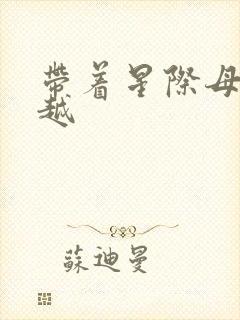 帶着星際母
越
蘇迪曼